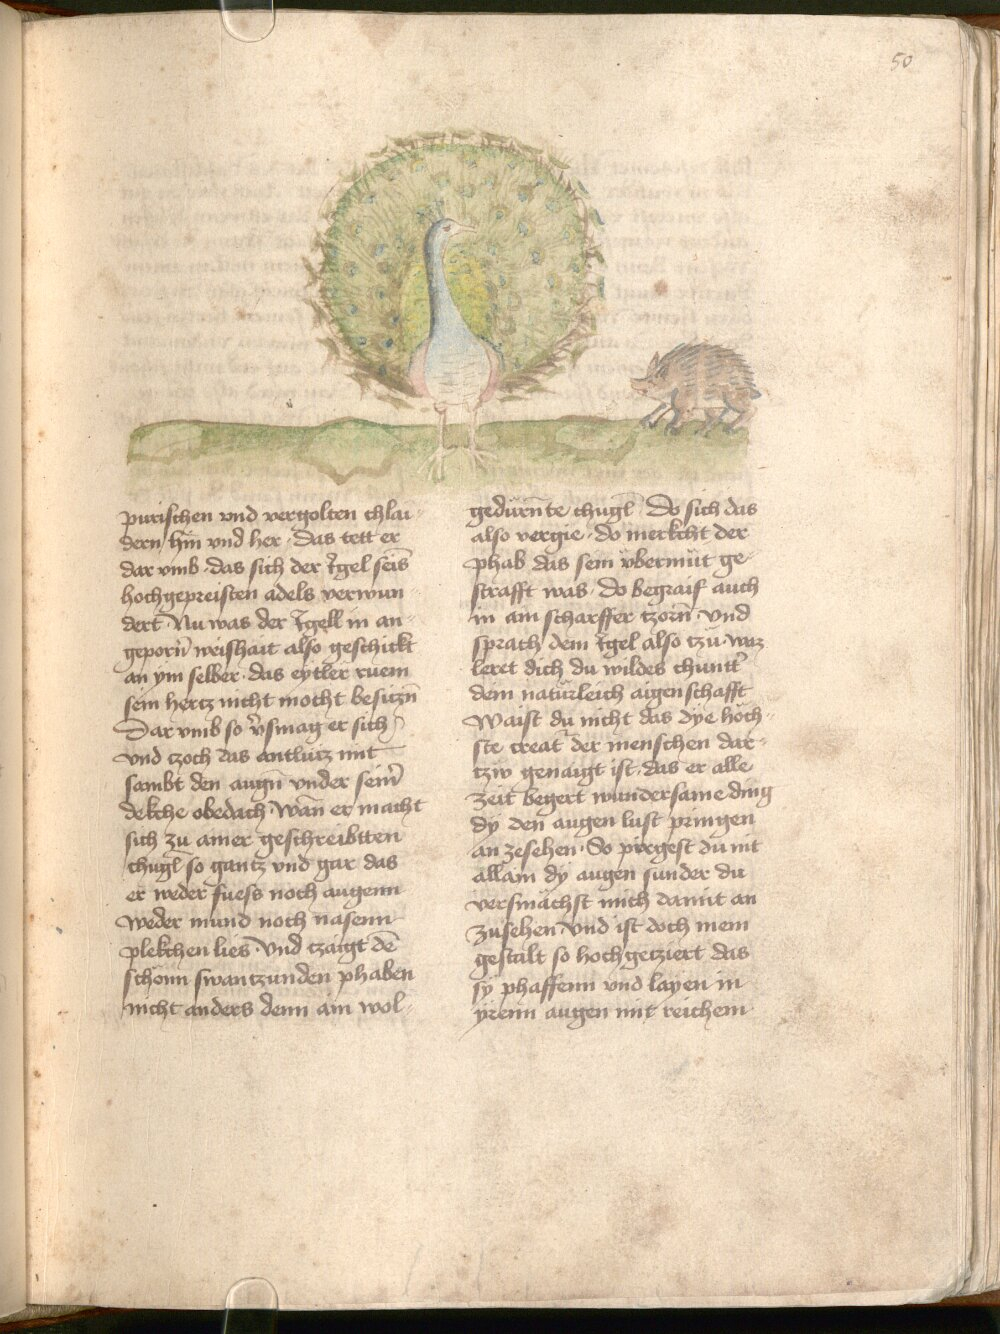 50
purischen vnd vergolten chlai-
dern hin vnd her · das tett er
dar vmb · das sich der Igel seis
hochgepreisten adels verwun-
dert · Nu was der Igell in an-
geporn̄ weishait also geschickt
an ym selber · das eytler ruem
sein hertz nicht mocht besiczn̄
Dar vmb so v̄smag er sich
vnd tzoch das antlutz mit
sambt den augn̄ vnder sein̄
dekche obedach · wan̄ er macht
sich zu ainer geschreibtten
chugl̄ so gantz vnd gar das
er weder fuess noch augenn
weder mund noch nasenn
plekchen lies · Vnd tzaigt dē
schonn swantzunden phaben
nicht anders denn ain wol-
gedürn̄te chugl̄ · Do sich das
also vergie · do merkcht der
phab das sein vbermüt ge-
strafft was · do begraif auch
in ain scharffer tzorn̄ · Vnd
sprach dem Igel also tzü · waz
leret dich du wildes chuntt̄
dein natürleich aigenschafft
Waist du nicht das dye höch-
ste creat̄ der menschen dar-
tzw genaigt ist · das er alle
zeit begert wundersame ding
dy den augen lust pringen
an zesehen · So pirgest du nit
allain dy augen sunder du
versmächst mich damit an
zusehen · Vnd ist doch mein
gestalt so hochgetziert das
sy phaffenn vnd layen in
yrenn augen mit reichem